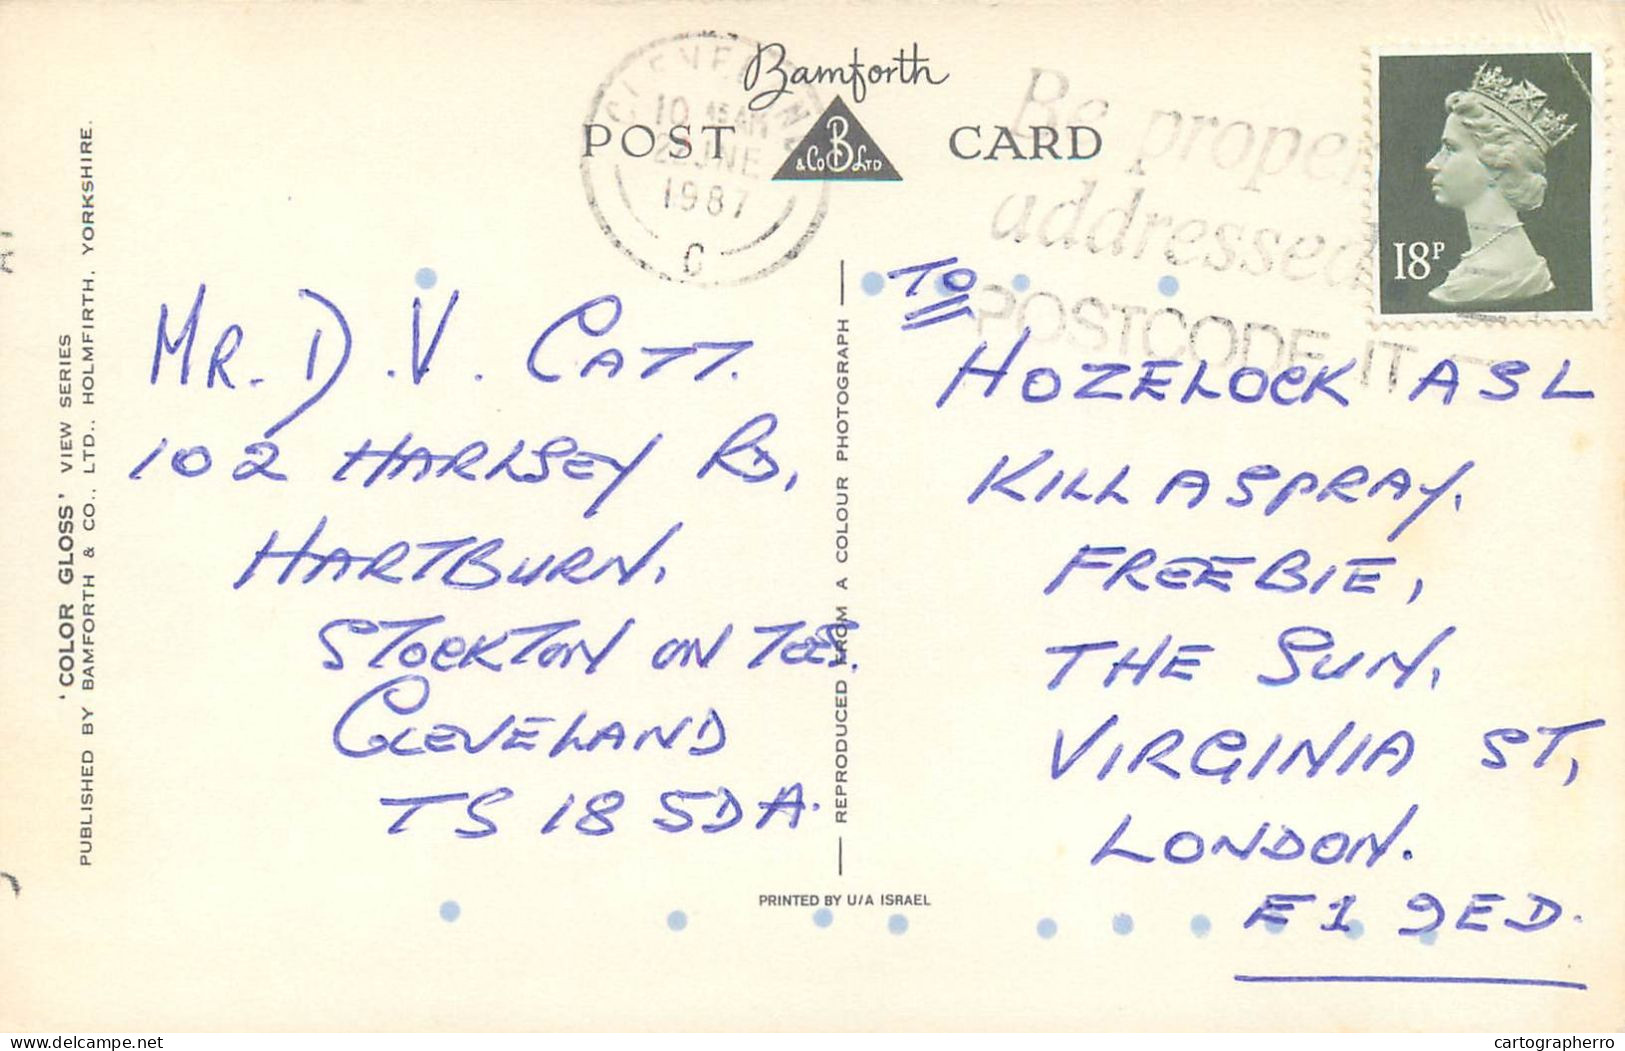 Bamforth
POST CARD
& Co B LTD
10 15 AM
JNE
1987
C
Be proper
addressed
POSTCODE IT
18P
'COLOR GLOSS' VIEW SERIES
PUBLISHED BY BAMFORTH & CO., LTD., HOLMFIRTH, YORKSHIRE.
MR. D. V. CATT.
102 HARLSEY RD,
HARTBURN,
STOCKTON ON TEES.
CLEVELAND
TS 18 5DA.
REPRODUCED FROM A COLOUR PHOTOGRAPH
PRINTED BY U/A ISRAEL
TO
HOZELOCK ASL
KILLASPRAY,
FREEBIE,
THE SUN,
VIRGINIA ST,
LONDON.
E1 9ED.
delcampe.net
cartographerro